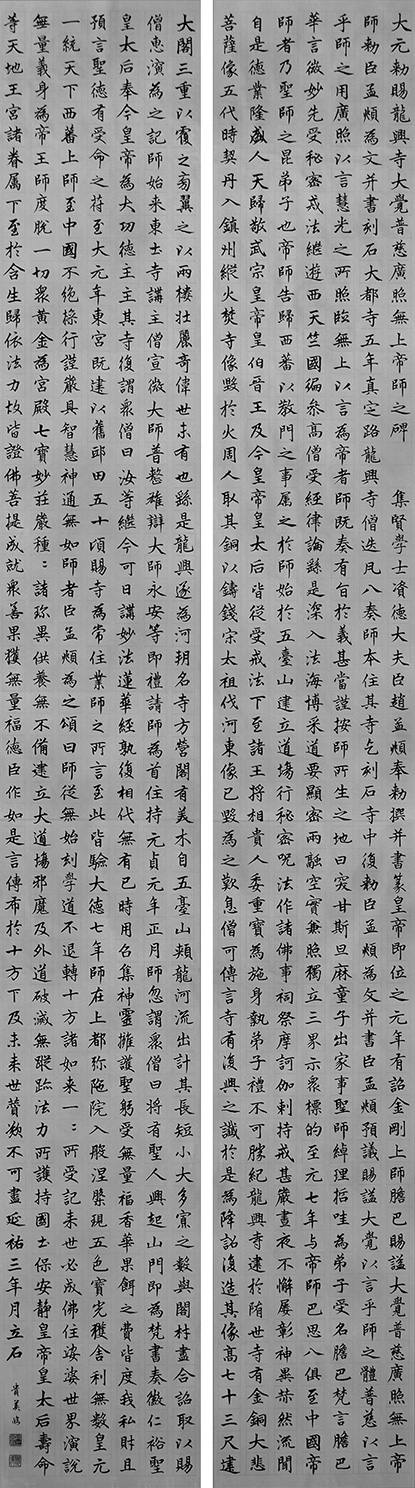 大元勅賜龍興寺大覺普慈廣照無上帝師之碑　集賢學士資德大夫臣趙孟頫奉勅撰并書篆皇帝即位之元年有詔金剛上師膽巴賜謚大覺普慈廣照無上帝
師勅臣孟頫為文并書刻石大都寺五年真定路龍興寺僧迭凡八奏師本住其寺乞刻石寺中復勅臣孟頫為文并書臣孟頫預議賜謚大覺以言乎師之體普慈以言
乎師之用廣照以言慧光之所照臨無上以言為帝者師既奏有旨於義甚當謹按師所生之地曰突甘斯旦麻童子出家事聖師綽理哲哇為弟子受名膽巴梵言膽巴
華言微妙先受秘密戒法繼遊西天竺國徧參高僧受經律論繇是深入法海博采道要顯密兩融空實兼照獨立三界示衆標的至元七年与帝師巴思八俱至中國帝
師者乃聖師之昆弟子也帝師告歸西蕃以教門之事属之於師始於五臺山建立道場行秘密呪法作諸佛事祠祭摩訶伽剌持戒甚嚴晝夜不懈屢彰神異赫然流聞
自是德業隆盛人天歸敬武宗皇帝皇伯晉王及今皇帝皇太后皆從受戒法下至諸王將相貴人委重寶為施身執弟子禮不可勝紀龍興寺建於隋世寺有金銅大悲
菩薩像五代時契丹入鎮州縱火焚寺像毀於火周人取其銅以鑄錢宋太祖伐河東像已毀為之歎息僧可傳言寺有復興之讖於是為降詔復造其像高七十三尺建
大閣三重以覆之旁翼之以兩樓壯麗奇偉世未有也繇是龍興遂為河朔名寺方營閣有美木自五臺山頰龍河流出計其長短小大多寡之數與閣材盡合詔取以賜
僧惠演為之記師始来東土寺講主僧宣微大師普整雄辯大師永安等即禮請師為首住持元貞元年正月師忽謂衆僧曰將有聖人興起山門即為梵書奏徽仁裕聖
皇太后奉今皇帝為大功德主主其寺復謂衆僧曰汝等繼今可日講妙法蓮華經孰復相代無有已時用召集神靈擁護聖躬受無量福香華果餌之費皆度我私財且
預言聖德有受命之符至大元年東宮既建以舊邸田五十頃賜寺為常住業師之所言至此皆驗大德七年師在上都弥陁院入般涅槃現五色寶光獲舍利無數皇元
一統天下西蕃上師至中國不絕操行謹嚴具智慧神通無如師者臣孟頫為之頌曰師從無始劫學道不退轉十方諸如来一々所受記来世必成佛住娑婆世界演說
無量義身為帝王師度脫一切衆黃金為宮殿七寶妙莊嚴種々諸珍異供養無不備建立大道場邪魔及外道破滅無蹤跡法力所護持國土保安静皇帝皇太后壽命
等天地王宮諸眷属下至於含生歸依法力故皆證佛菩提成就衆善果獲無量福德臣作如是言傳布於十方下及未来世贊歎不可盡延祐三年月立石